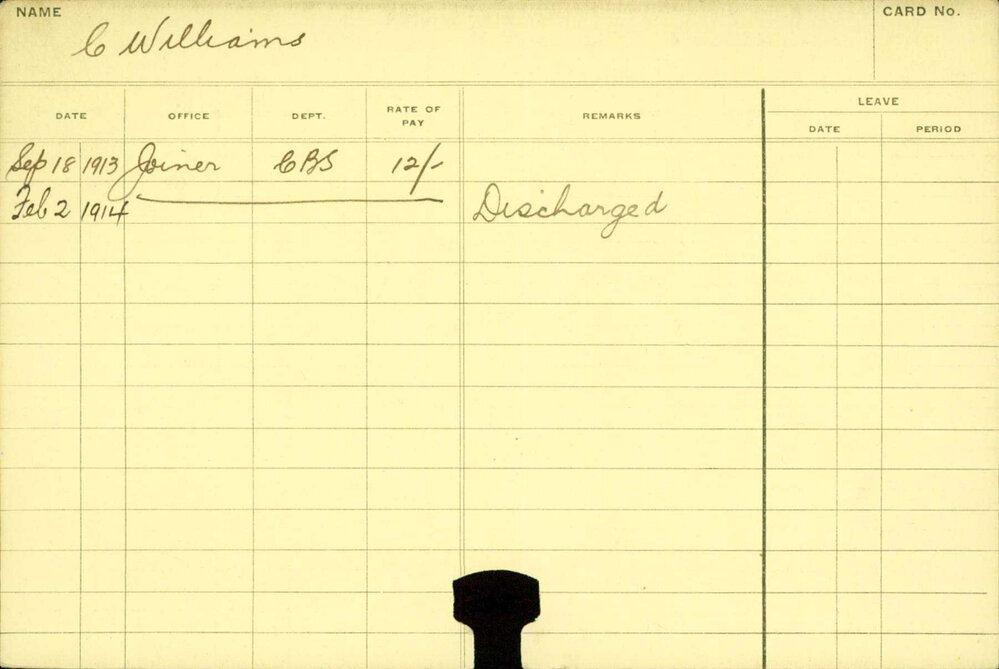 NAME CARD No.
C Williams
LEAVE
DATE OFFICE DEPT. RATE OF PAY REMARKS DATE PERIOD
Sep 18 1913 Joiner CBS 12/-
Feb 2 1914 Discharged